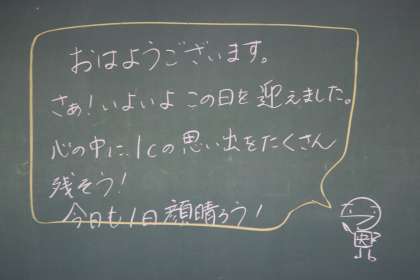 おはようございます。
さぁ!いよいよこの日を迎えました。
心の中に、1cの思い出をたくさん
残そう!
今日も1日顔晴ろう!